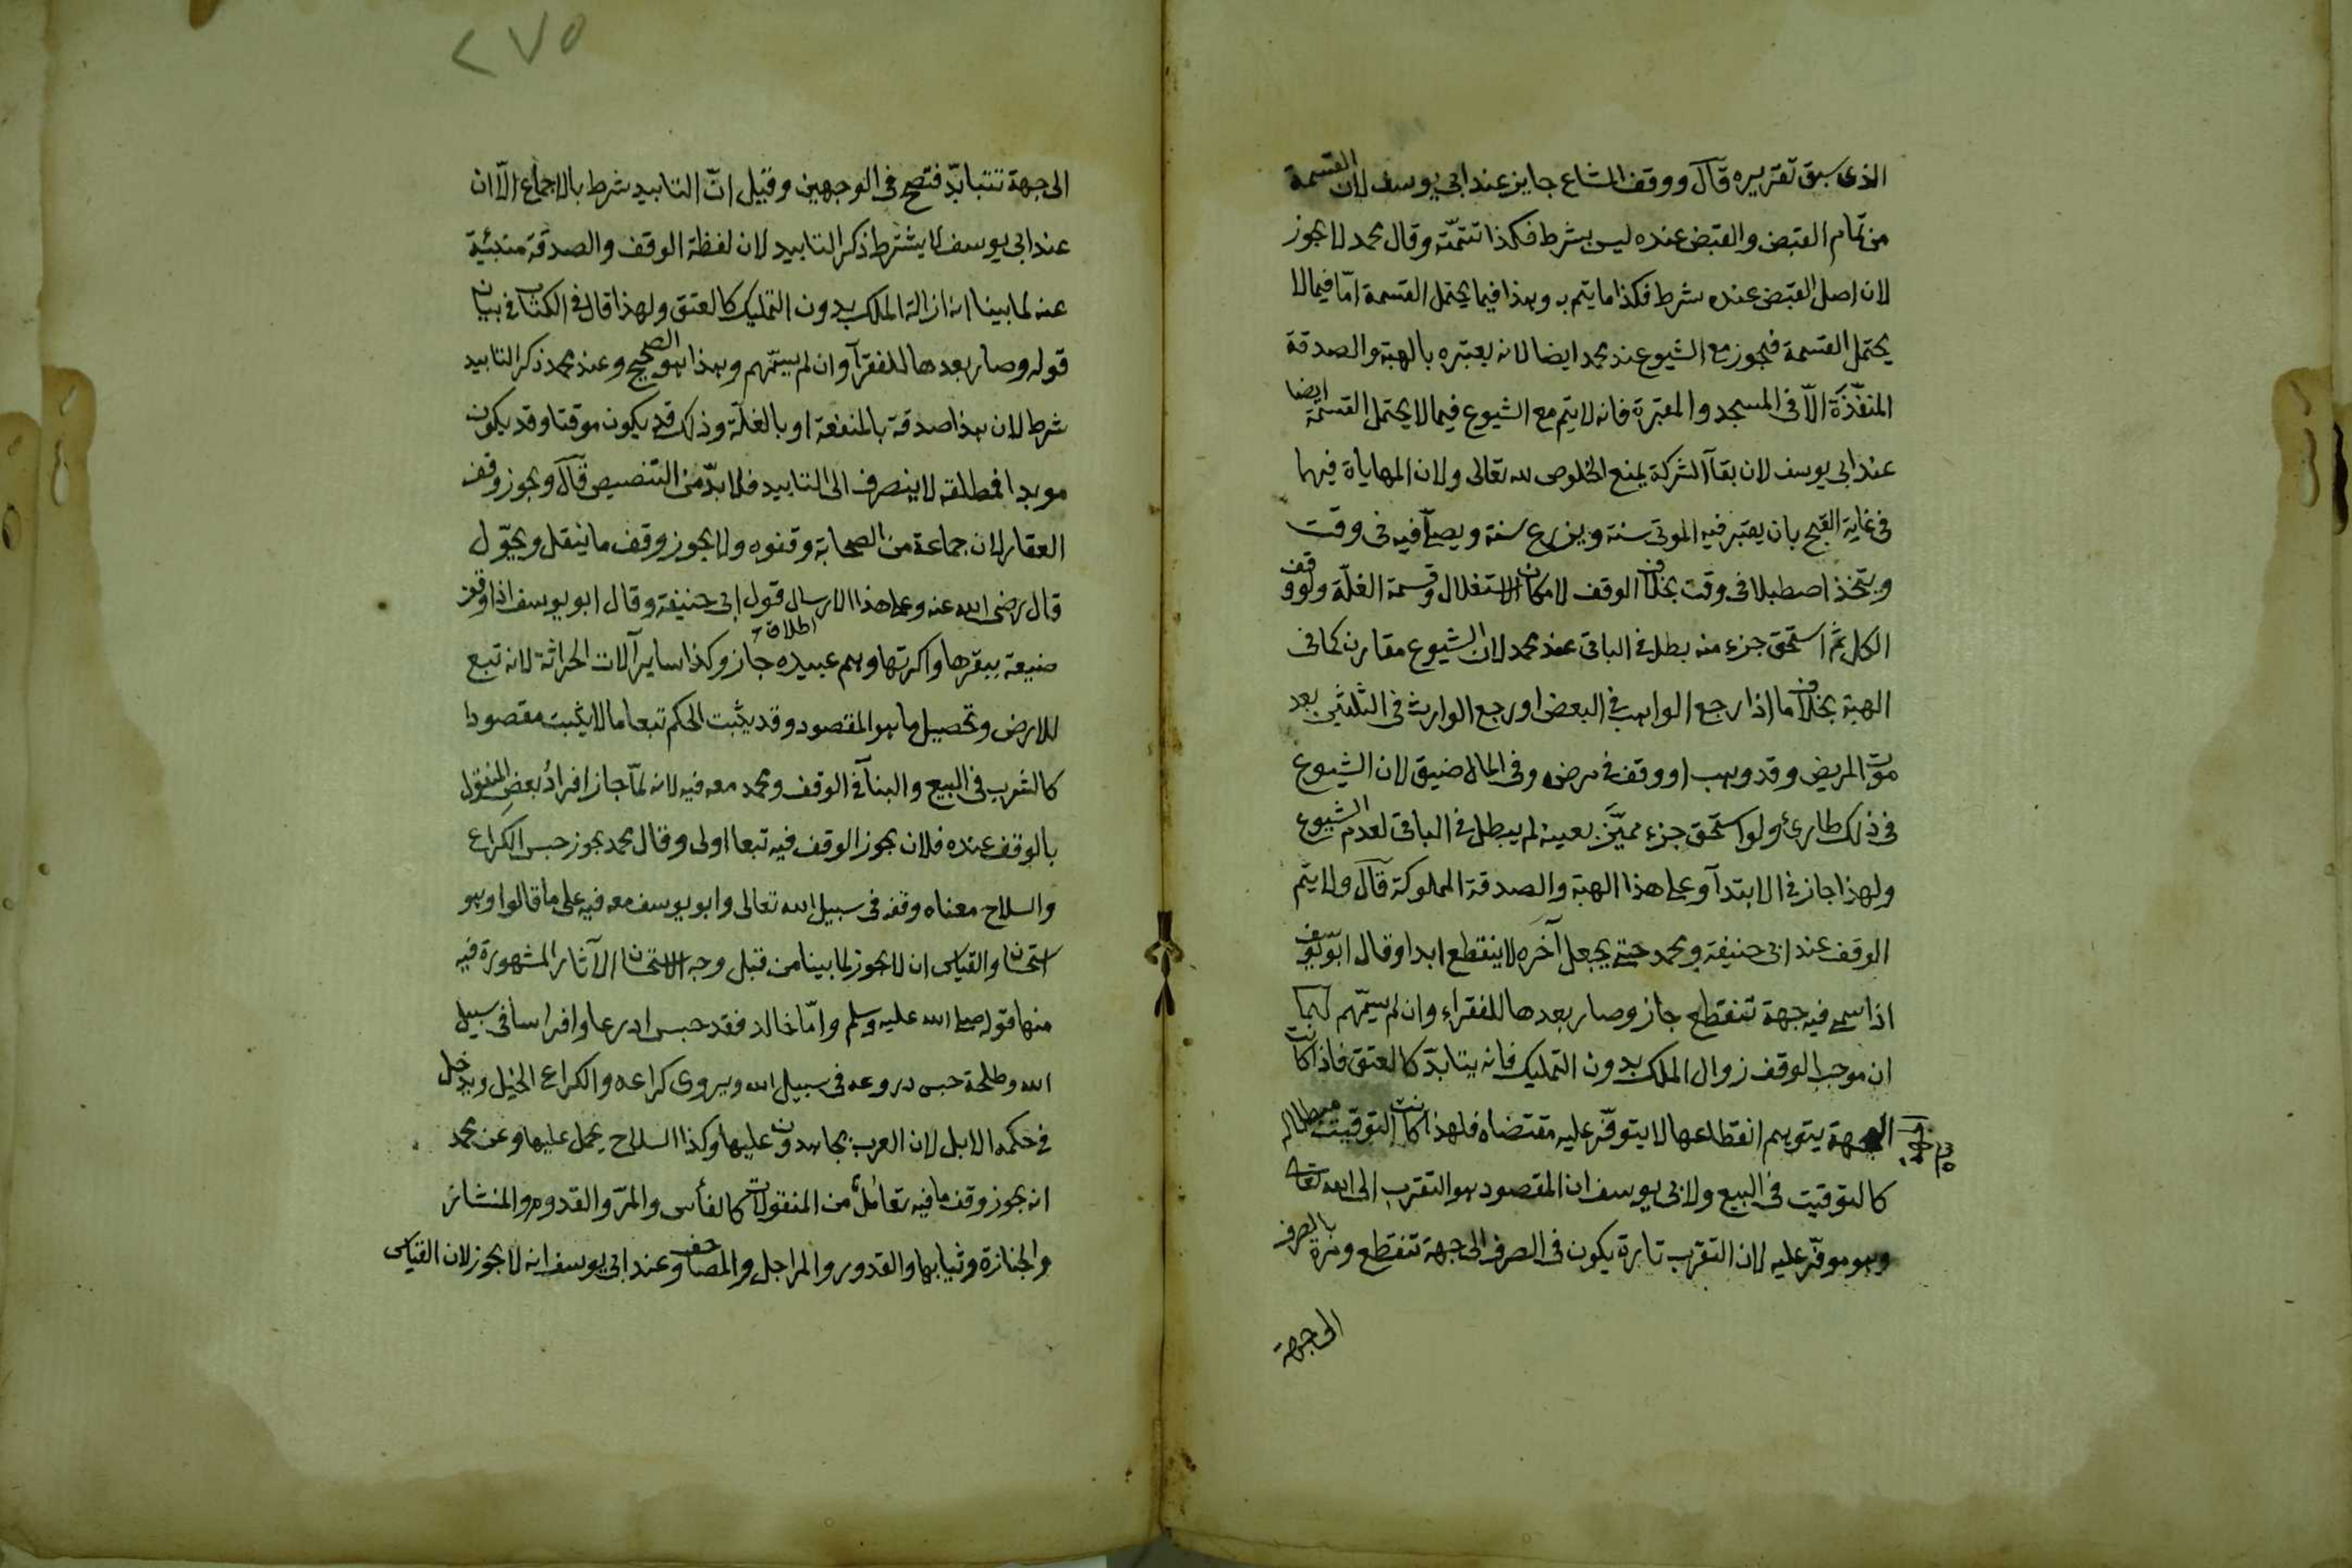 الذى سبق تقريره قال ووقف المشاع جايز عند ابى يوسف لان القسمة
من تمام القبض والقبض عنده ليس بشرط فكذا تتمته وقال محمد لا يجوز
لان اصل القبض عنده شرط فكذا ما يتم به وهذا فيما يحتمل القسمة امّا فيما لا
يحتمل القسمة فيجوز مع الشيوع عند محمد ايضا لانه يعتبره بالهبة والصدقة
المنفّذة الّا فى المسجد والمقبرة فانه لا يتم مع الشيوع فيما لا يحتمل القسمة ايضا
عند ابى يوسف لان بقآ الشركة يمنع الخلوص لله تعالى ولان المهاياة فيهما
فى غاية القبح بان يقبر فيه الموتى سنة ويزرع سنة ويصلّى فيه فى وقت
ويتخذ اصطبلا فى وقت بخلاف الوقف لامكان الاستغلال وقسمة الغلّة ولو وقف
الكل ثمّ استحق جزء منه بطل فى الباقى عند محمد لان الشيوع مقارن كما فى
الهبة بخلاف ما اذا رجع الواهب فى البعض او رجع الوارث فى الثلثين بعد
موت المريض وقد وهب او وقف فى مرضه وفى المال ضيق لان الشيوع
فى ذلك طارئ ولو استحق جزء مميّز بعينه لم يبطل فى الباقى لعدم الشيوع
ولهذا جاز فى الابتدآ وعلى هذا الهبة والصدقة المملوكة قال ولا يتم
الوقف عند ابى حنيفة ومحمد حتى يجعل آخره لا ينقطع ابدا وقال ابو يوسف
اذا سمى فيه جهة تنقطع جاز وصار بعدها للفقراء وان لم يسمّهم لهما
ان موجب الوقف زوال الملك بدون التمليك فانه يتابدّ كالعتق فاذا كانت
الجهة يتوهم انقطاعها لا يتوفّر عليه مقتضاه فلهذا كانت التوقيت مبطلا له
كالتوقيت فى البيع ولابى يوسف ان المقصود هو التقرب الى الله تعالى
وهو موفّر عليه لان التقرب تارة يكون فى الصرف الى جهة تنقطع ومرة بالصرف
الى جهة
٢٧٥
الى جهة تتبابّد فتصح فى الوجهين وقيل انّ التابيد شرط بالاجماع الّا ان
عند ابى يوسف لا يشترط ذكر التابيد لان لفظة الوقف والصدقة منبئية
عنه لما بينا انه ازالة الملك بدون التمليك كالعتق ولهذا قال فى الكتاب فى بيان
قوله وصار بعدها للفقرآ وان لم يسمّهم وهذا هو الصحيح وعند محمد ذكر التابيد
شرط لان هذا صدقة بالمنفعة او بالغلّة وذلك قد يكون موقتا وقد يكون
موبدا فمطلقه لا ينصرف الى التابيد فلا بدّ من التنصيص قال ويجوز وقف
العقار لان جماعة من الصحابة وقفوه ولا يجوز وقف ما ينقل ويحوّل
قال رضى الله عنه وعلى هذا الارسال قول ابى حنيفة وقال ابو يوسف اذا وقف
اطلاق
ضيعة ببقرها واكرتها وهم عبيده جاز وكذا ساير آلات الحراثة لانه تبع
للارض وتحصيل ما هو المقصود وقد يثبت الحكم تبعا ما لا يثبت مقصودا
كالشرب فى البيع والبنآ فى الوقف ومحمد معه فيه لانه لمّا جاز افرادُ بعضِ المنقول
بالوقف عنده فلان يجوز الوقف فيه تبعا اولى وقال محمد يجوز حبس الكراع
والسلاح معناه وقفه فى سبيل الله تعالى وابو يوسف معه فيه على ما قالوا وهو
استحان والقياس ان لا يجوز لما بينا من قبل وجه الاستحان الآثار المشهورة فيه
منها قوله صلى الله عليه وسلم وامّا خالد فقد حبس ادرعا وافراسا فى سبيل
الله وطلحة حبس دروعه فى سبيل الله ويروى كراعه والكراع الخيل ويدخل
فى حكمه الابل لان العرب يجاهدون عليها وكذا السلاح يحمل عليها وعن محمد
انه يجوز وقف ما فيه تعامُل من المنقولات كالفأس والمرّ والقدوم والمنشار
والجنازة وثيابها والقدور والمراجل والمصاحف وعند ابى يوسف انه لا يجوز لان القياس